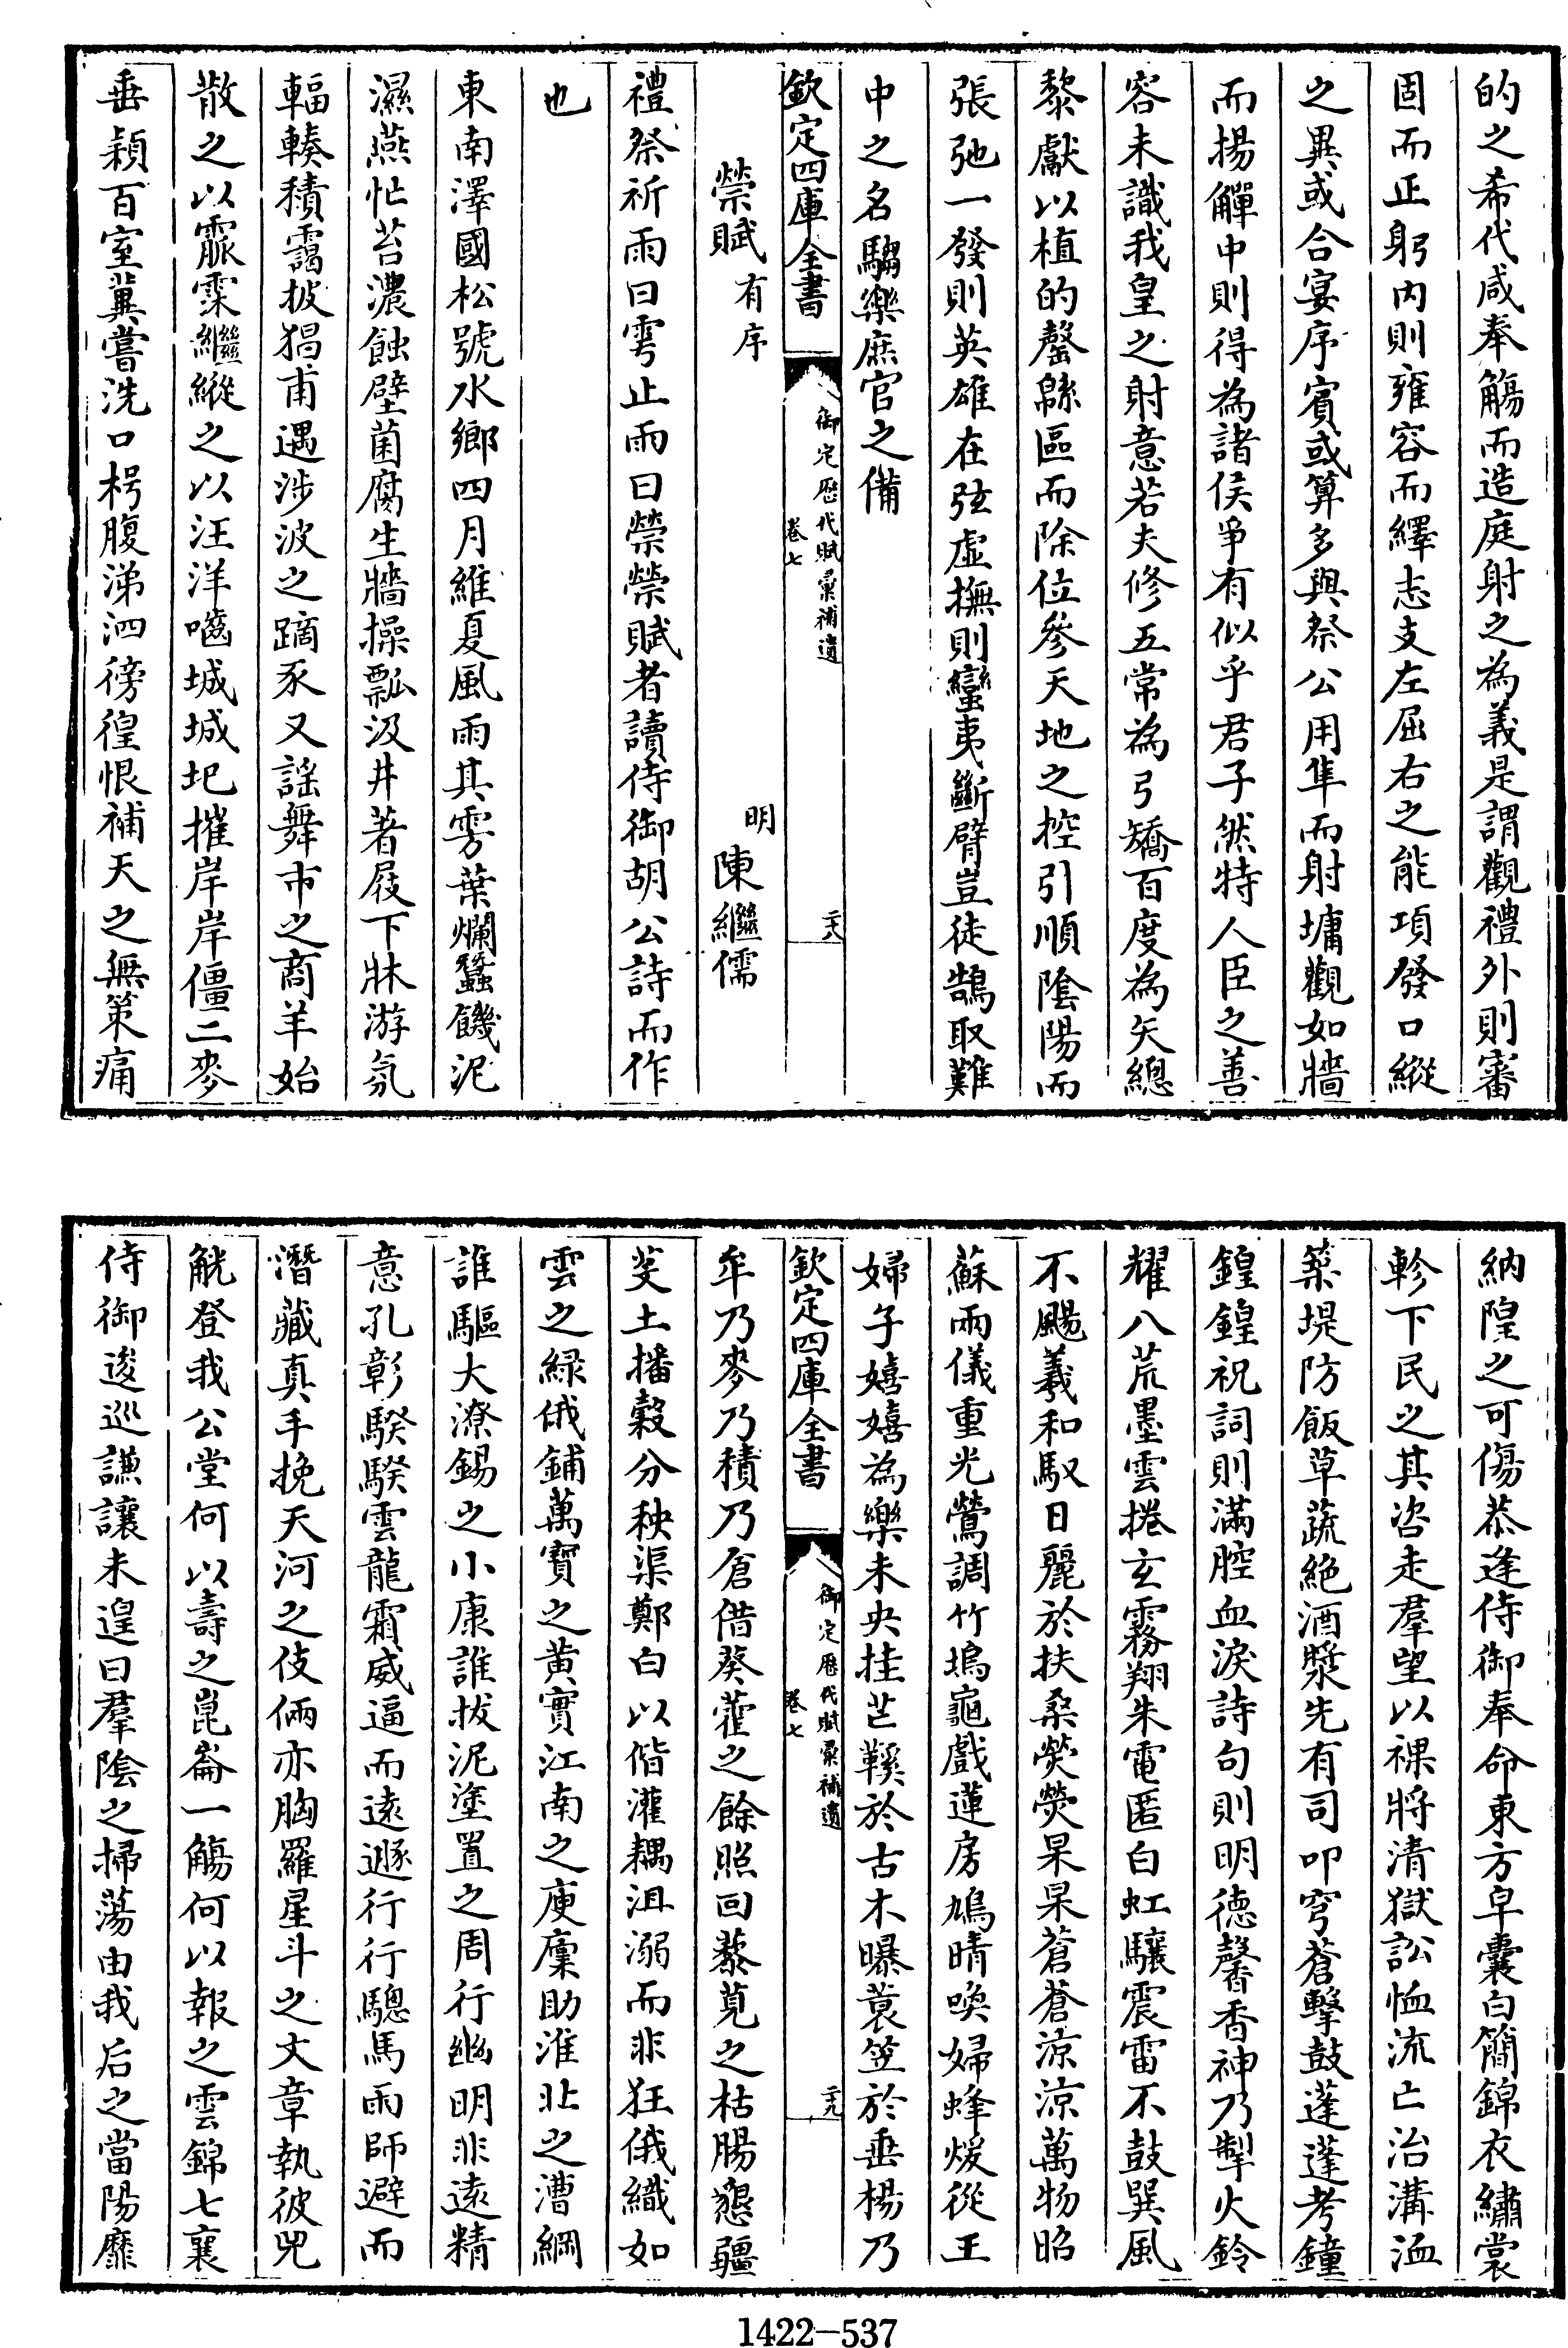 的之希代咸奉觴而造庭射之為義是謂觀禮外則審
固而正躬内則雍容而繹志支左屈右之能項發口縱
之異或合宴序賓或算多與祭公用隼而射墉觀如牆
而揚觶中則得為諸侯爭有似乎君子然特人臣之善
容未識我皇之射意若夫修五常為弓矯百度為矢總
黎獻以植的罄緜區而除位參天地之控引順陰陽而
張弛一發則英雄在弦虛撫則蠻夷斷臂豈徒鵠取難
中之名騶樂庶官之備
欽定四庫全書
御定歷代賦彙補遺
卷七
二十八
禜賦有序
明陳繼儒
禮祭祈雨曰雩止雨曰禜禜賦者讀侍御胡公詩而作
也
東南澤國松號水鄉四月維夏風雨其雱葉爛蠶饑泥
濕燕忙苔濃蝕壁菌腐生牆操瓢汲井著屐下牀游氛
輻輳積靄披猖甫遇涉波之蹢豕又謡舞市之商羊始
散之以霢霂繼縱之以汪洋嚙城城圮摧岸岸僵二麥
垂穎百室冀嘗洗口枵腹涕泗徬徨恨補天之無策痛
納隍之可傷恭逢侍御奉命東方皁囊白簡錦衣繡裳
軫下民之其咨走羣望以祼將清獄訟恤流亡治溝洫
築堤防飯草蔬絶酒漿先有司叩穹蒼擊鼓逢逢考鐘
鍠鍠祝詞則滿腔血淚詩句則明德馨香神乃掣火鈴
耀八荒墨雲捲玄霧翔朱電匿白虹驤震雷不鼓巽風
不颺羲和馭日麗於扶桑熒熒杲杲蒼蒼涼涼萬物昭
蘇兩儀重光鶯調竹塢龜戲蓮房鳩晴喚婦蜂煖從王
婦子嬉嬉為樂未央挂芒鞵於古木曝蓑笠於垂楊乃
欽定四庫全書
御定歷代賦彙補遺
卷七
二十九
牟乃麥乃積乃倉借葵藿之餘照回藜莧之枯腸懇疆
芟土播穀分秧渠鄭白以偕灌耦沮溺而非狂俄織如
雲之緑俄鋪萬寳之黄實江南之庾廩助淮北之漕綱
誰驅大潦錫之小康誰拔泥塗置之周行幽明非遠精
意孔彰騤騤雲龍霜威逼而遠遯行行驄馬雨師避而
潛藏真手挽天河之伎倆亦胸羅星斗之文章執彼兕
觥登我公堂何以壽之崑崙一觴何以報之雲錦七襄
侍御逡巡謙讓未遑曰羣陰之掃蕩由我后之當陽靡
1422—537